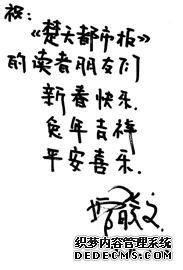 祝:
《楚天都市报》
的读者朋友们
新春快乐.
兔年吉祥
平安喜乐.
织梦内容管理系统
DEDECMS.COM